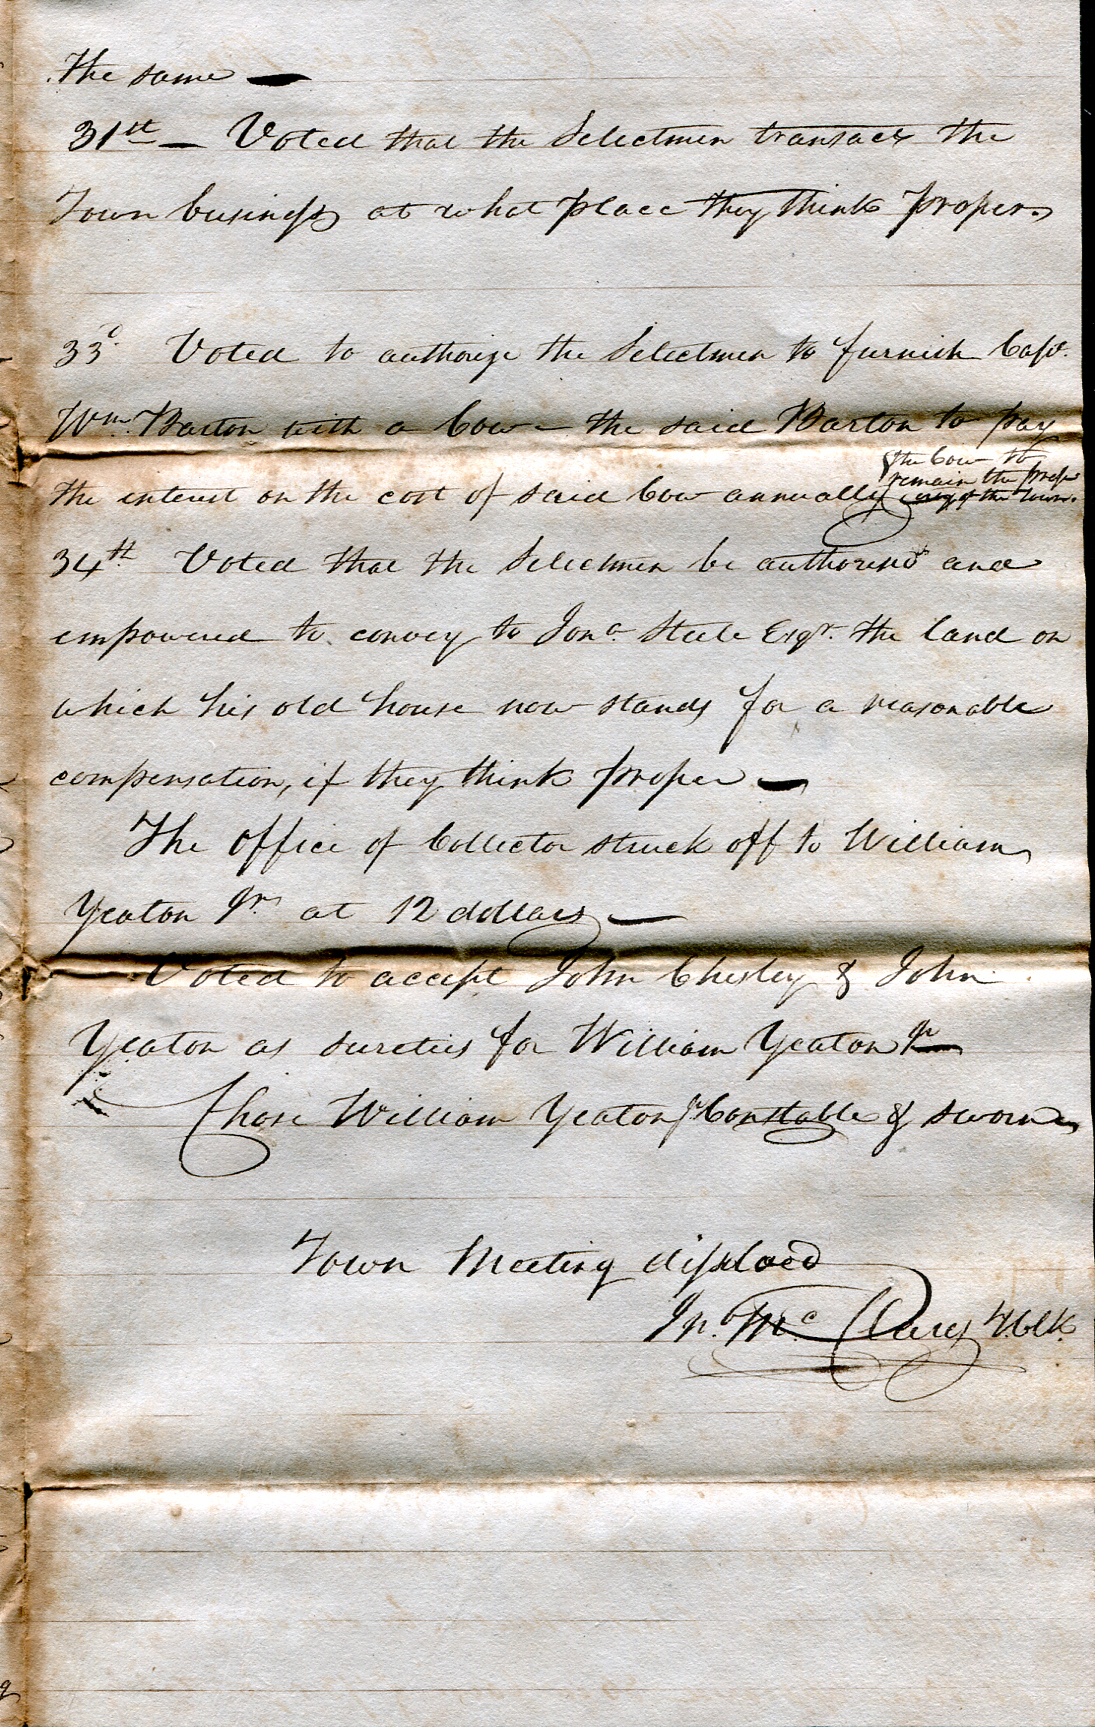 the same —
31st — Voted that the Selectmen transact the
Town business at what place they think proper.
33d. Voted to authorize the Selectmen to furnish Capt.
Wm. Barton with a Cow — the said Barton to pay
the interest on the cost of said Cow annually
the Cow to
remain the prop-
erty of the town.
34th Voted that the Selectmen be authorised and
empowered to convey to Jona. Steele Esqr. the land on
which his old house now stands for a reasonable
compensation, if they think proper —
The office of Collector struck off to William
Yeaton Jr. at 12 dollars —
Voted to accept John Chesley & John
Yeaton as sureties for William Yeaton Jr
Chose William Yeaton Jr Constable & sworn
Town Meeting dissolved
Jno. Mc Clary T. Clk.